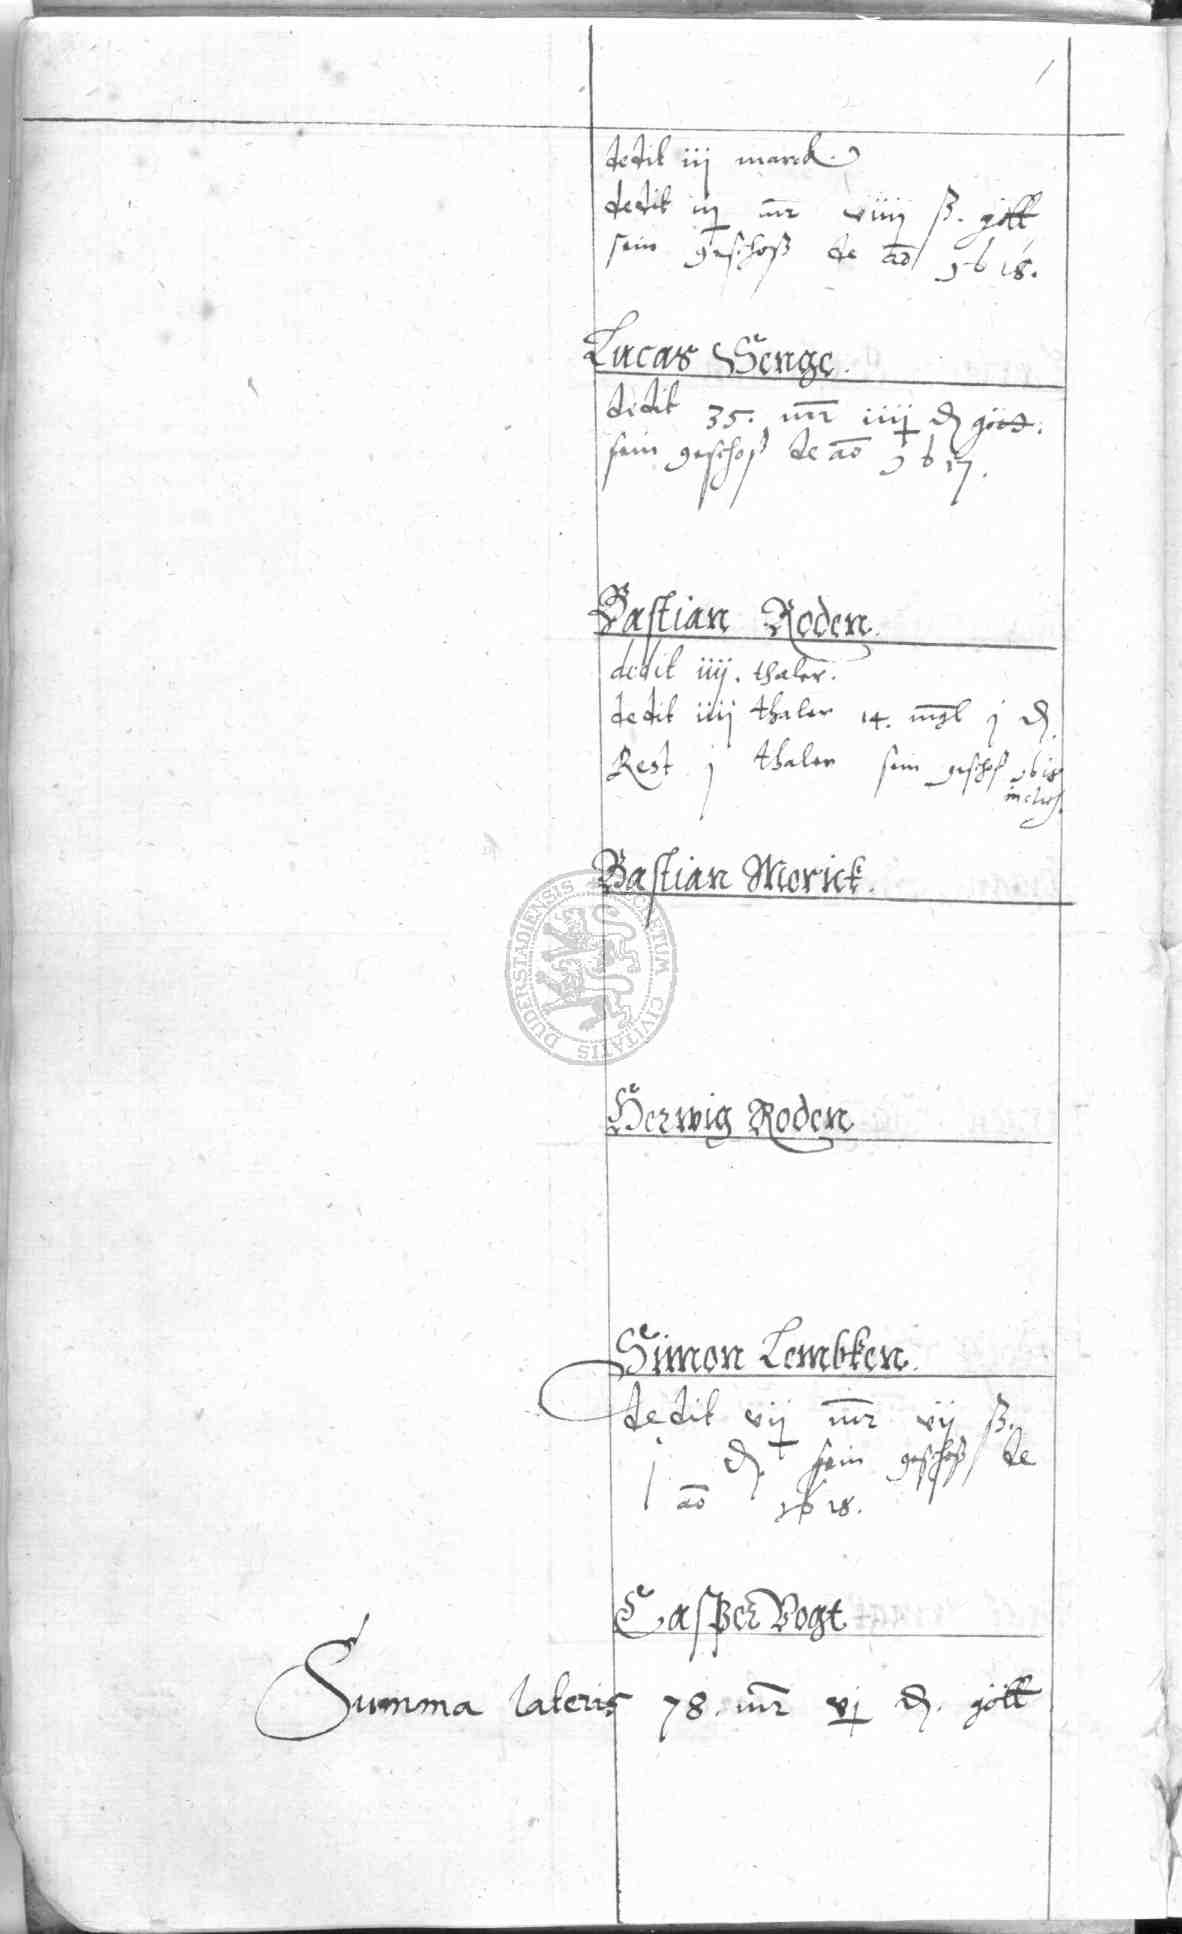 dedit iij marck.
dedit iij mr viiij ß. gött
sein geschoß de ao 1618.
Lucas Senge.
dedit 35. mr iiij d gött.
sein geschoß de ao 1617.
Bastian Roden.
dedit iiij. thaler.
dedit iiij thaler 14. mgl j d.
Rest j thaler sein geschoß 1618
inclus.
Bastian Morick.
DUDERSTADIENSIS CIVITATIS
Herwig Roden
Simon Lembken.
dedit vij mr vij ß.
j d. sein geschoß de
ao 1618.
Casper Vogt.
Summa lateris 78. mr vj d. gött